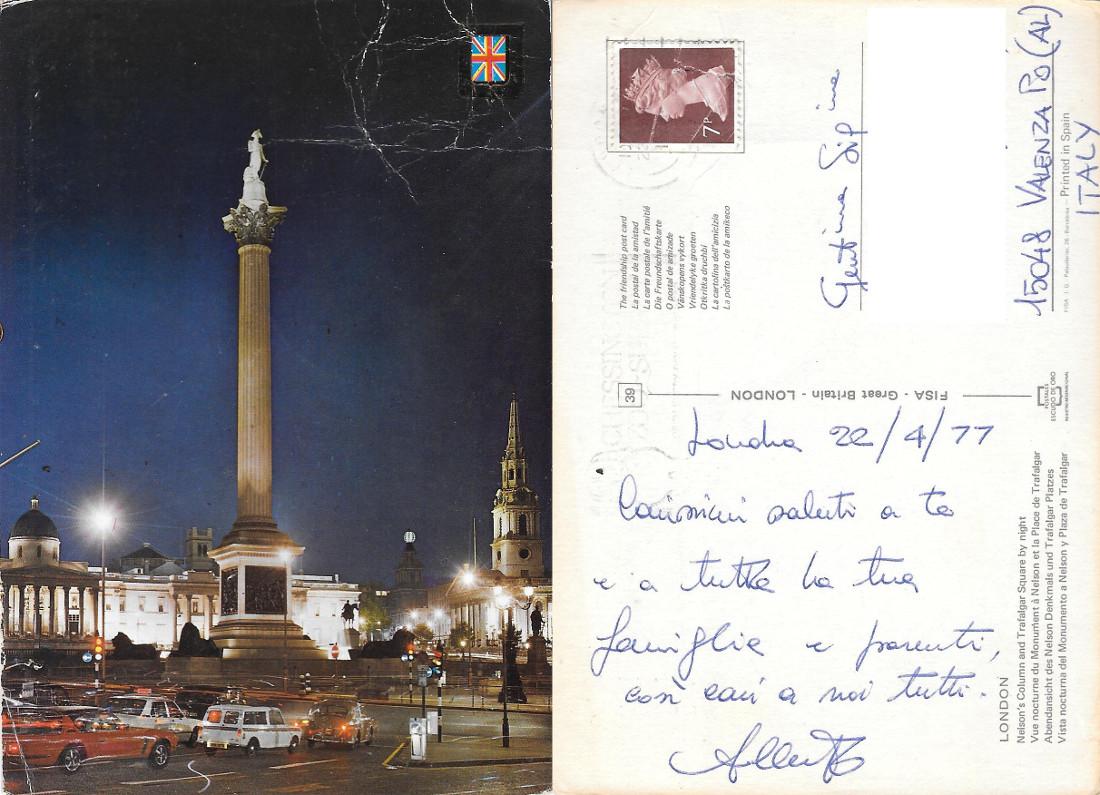 7P
The friendship post card
La postal de la amistad
La carte postale de l'amitié
Die Freundschaftskarte
O postal de amizade
Vänskapens vykort
Vriendelyke groeten
Otkritka druchbi
La cartolina dell'amicizia
La poŝtkarto de la amikeco
Gentima
15048 VALENZA PO (AL)
ITALY
Printed in Spain
39
FISA - Great Britain - LONDON
ESCUDO DE ORO
Londra 22/4/77
Carissimi saluti a te
e a tutta la tua
famiglia e parenti,
così cari a noi tutti.
LONDON
Nelson's Column and Trafalgar Square by night
Vue nocturne du Monument à Nelson et la Place de Trafalgar
Abendansicht des Nelson Denkmals und Trafalgar Platzes
Vista nocturna del Monumento a Nelson y Plaza de Trafalgar